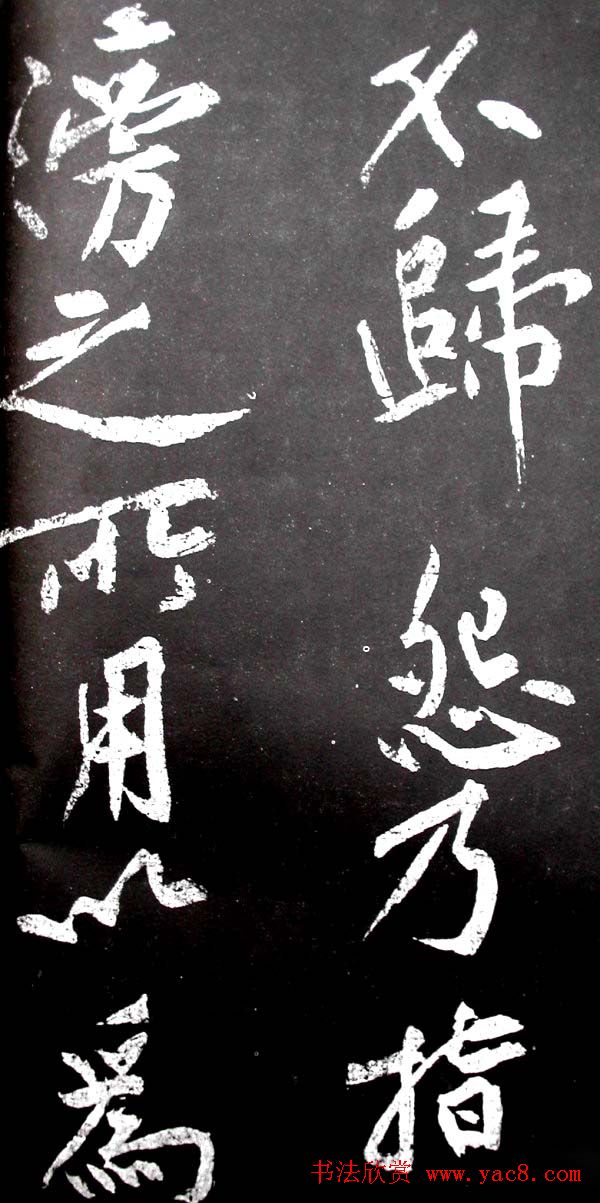 不歸怨乃指
滂之所用以為
书法欣赏 www.yac8.com